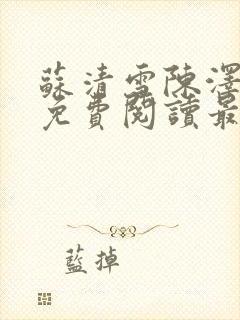 蘇清雪陳澤
免費閱讀最
藍掉